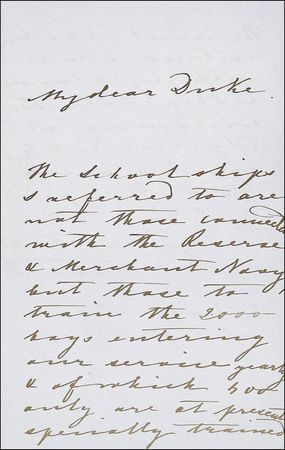 My dear Duke.
The School ships
I referred to are
not those connected
with the Reserve
& Merchant Navy,
but those to
train the 2000
boys entering
our service yearly
& of which 500
only are at present
specially trained